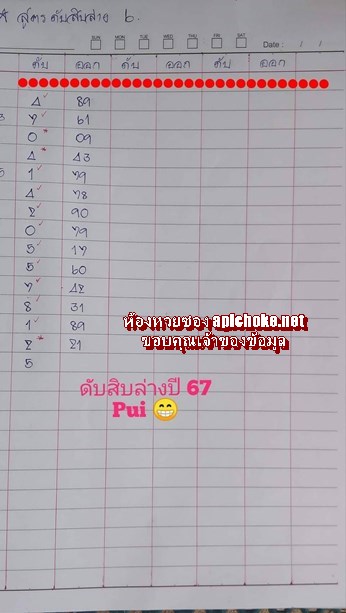 * สูตร ดับสิบล่าง ๖.
SUN MON TUE WED THU FRI SAT
Date : / /
ดับ ออก ดับ ออก ดับ ออก
4 89
7 61
0 09
4 43
1 79
4 78
2 90
0 79
5 17
5 60
7 42
8 31
1 89
2 21
5
ห้องหวยซอง apichoke.net
ขอบคุณเจ้าของข้อมูล
ดับสิบล่างปี 67
Pui 😁